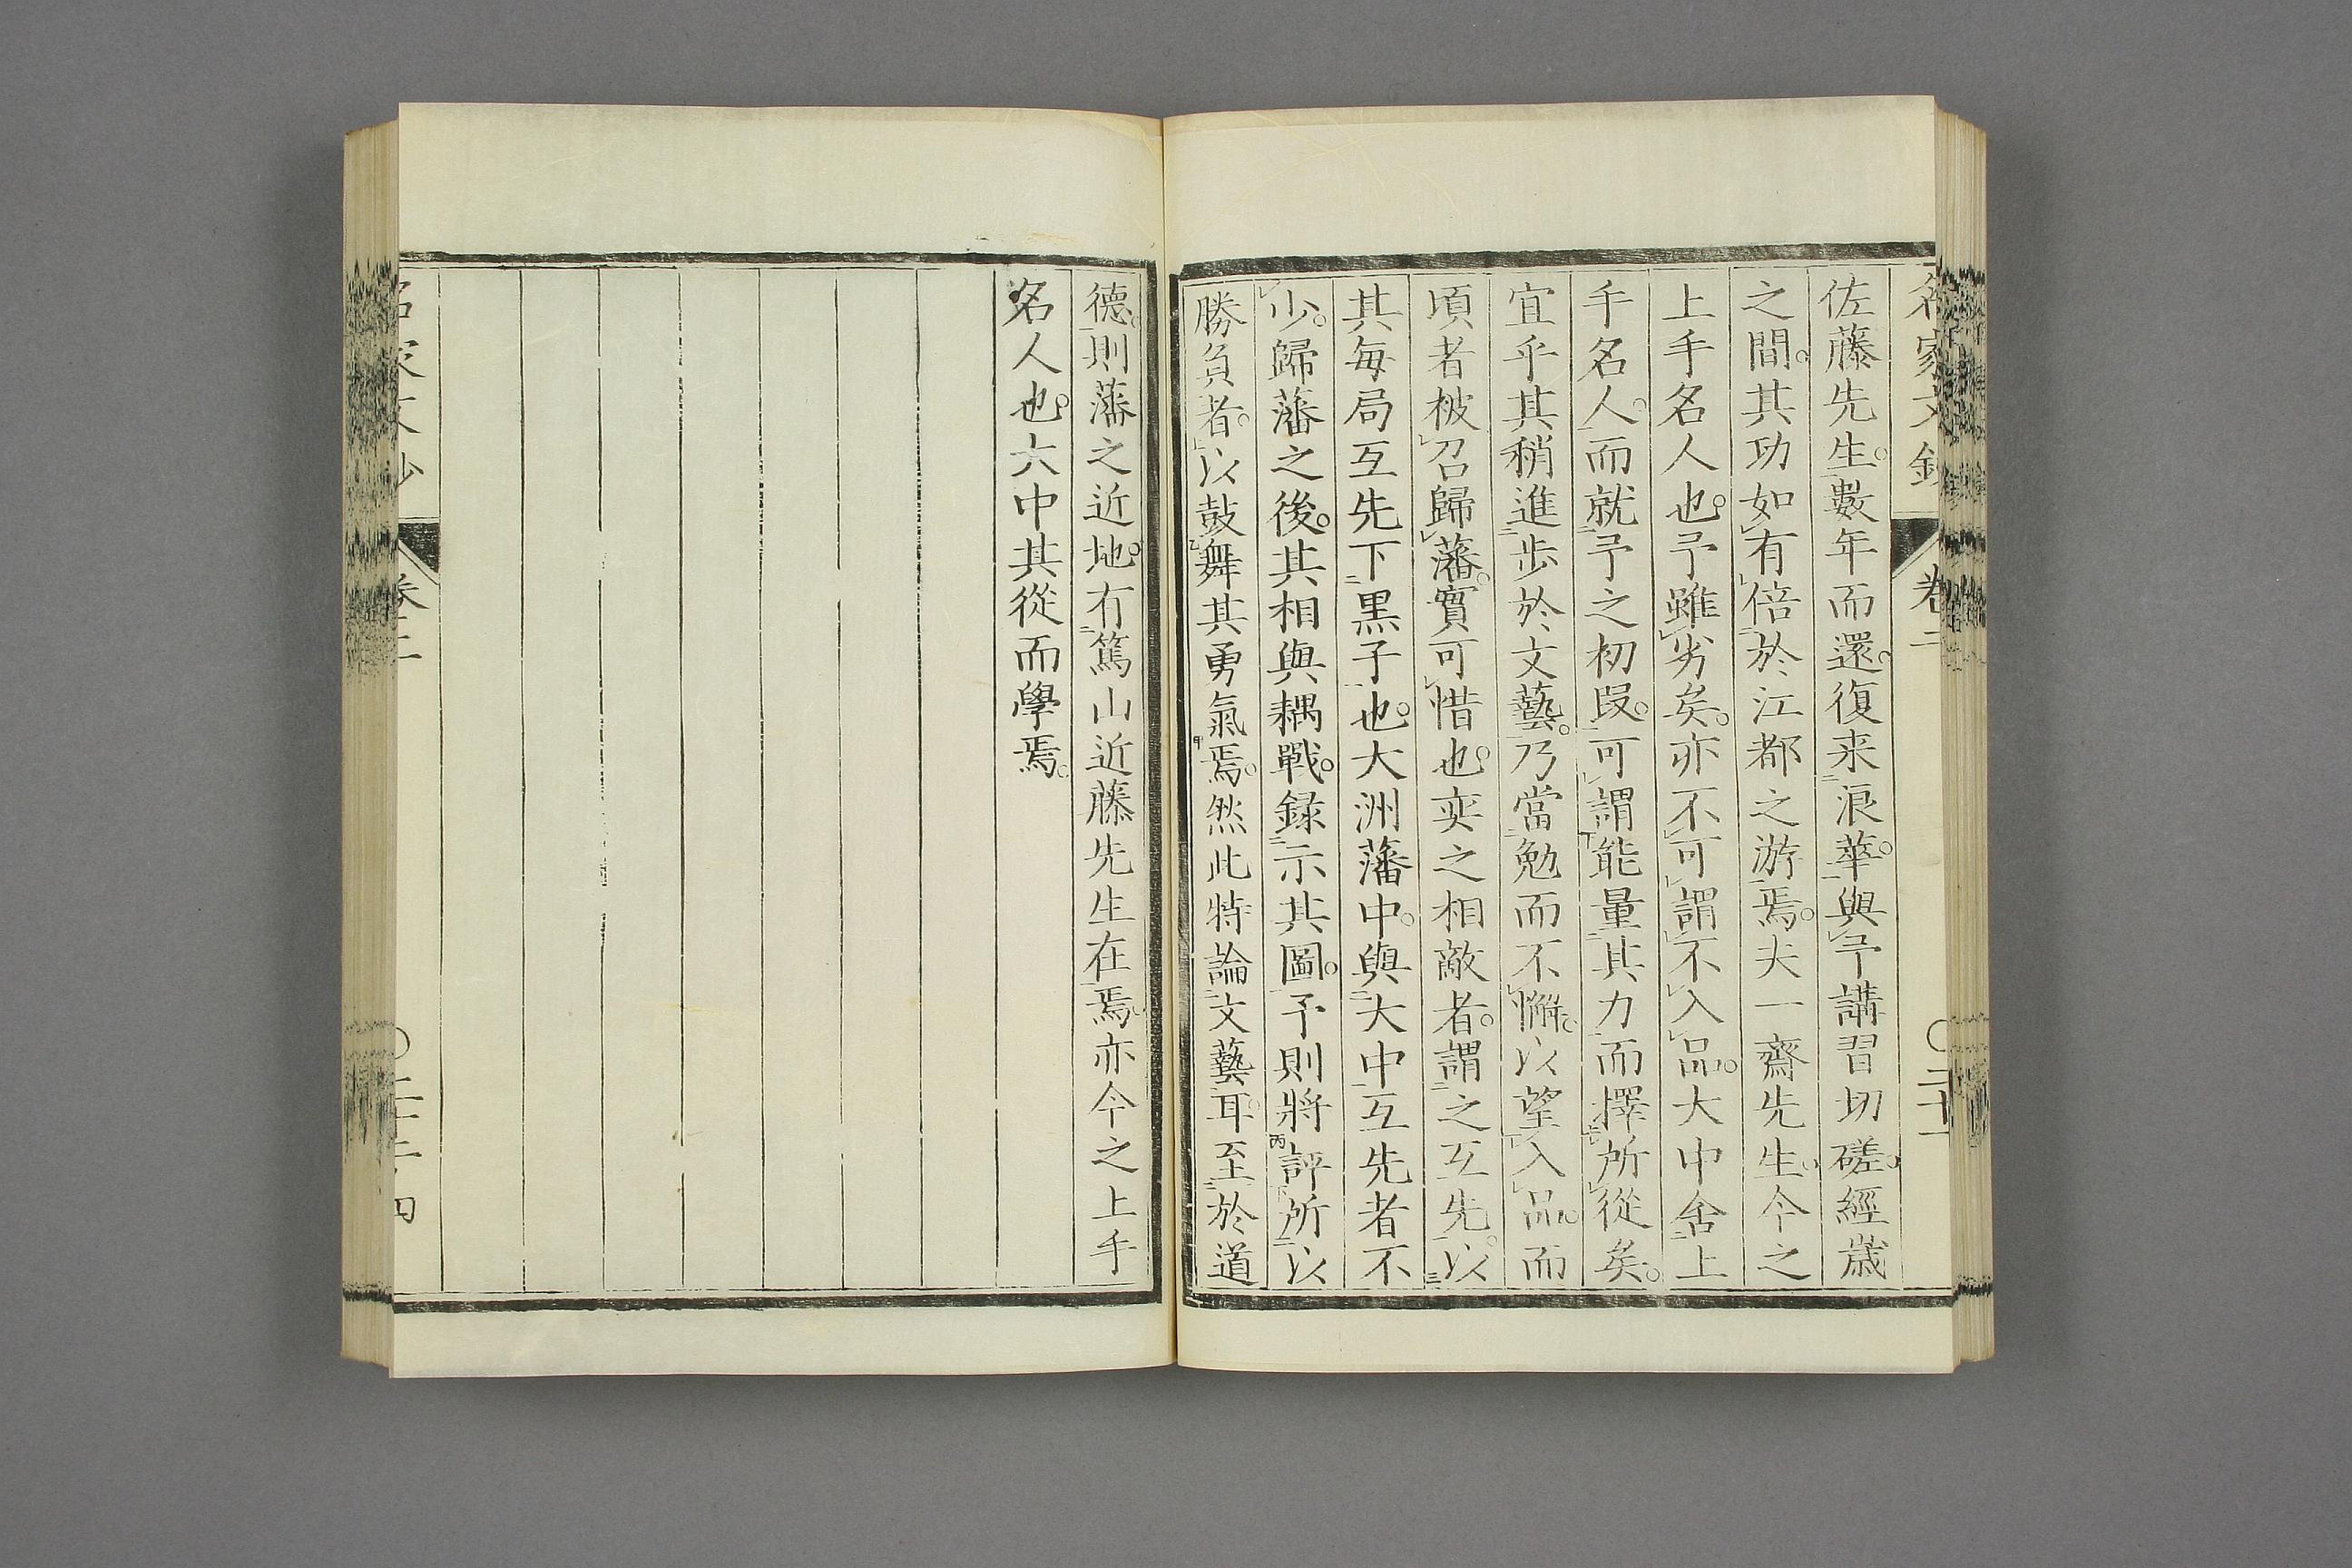 佐藤先生。數年而還。復来浪華。與予講習切磋。經歳
之間。其功如有倍於江都之游焉。夫一齋先生。今之
上手名人也。予雖劣矣。亦不可謂不入品。大中舍上
手名人。而就予之初段。可謂能量其力而擇所從矣。
宜乎其稍進歩於文藝。乃當勉而不懈。以望入品。而
頃者被召歸藩。實可惜也。奕之相敵者。謂之互先。以
其毎局互先下黒子也。大洲藩中。與大中互先者不
少。歸藩之後。其相與耦戰。録示其圖。予則將評所以
勝負者。以鼓舞其勇氣焉。然此特論文藝耳。至於道
德。則藩之近地。有篤山近藤先生在焉。亦今之上手
名人也。大中其從而學焉。